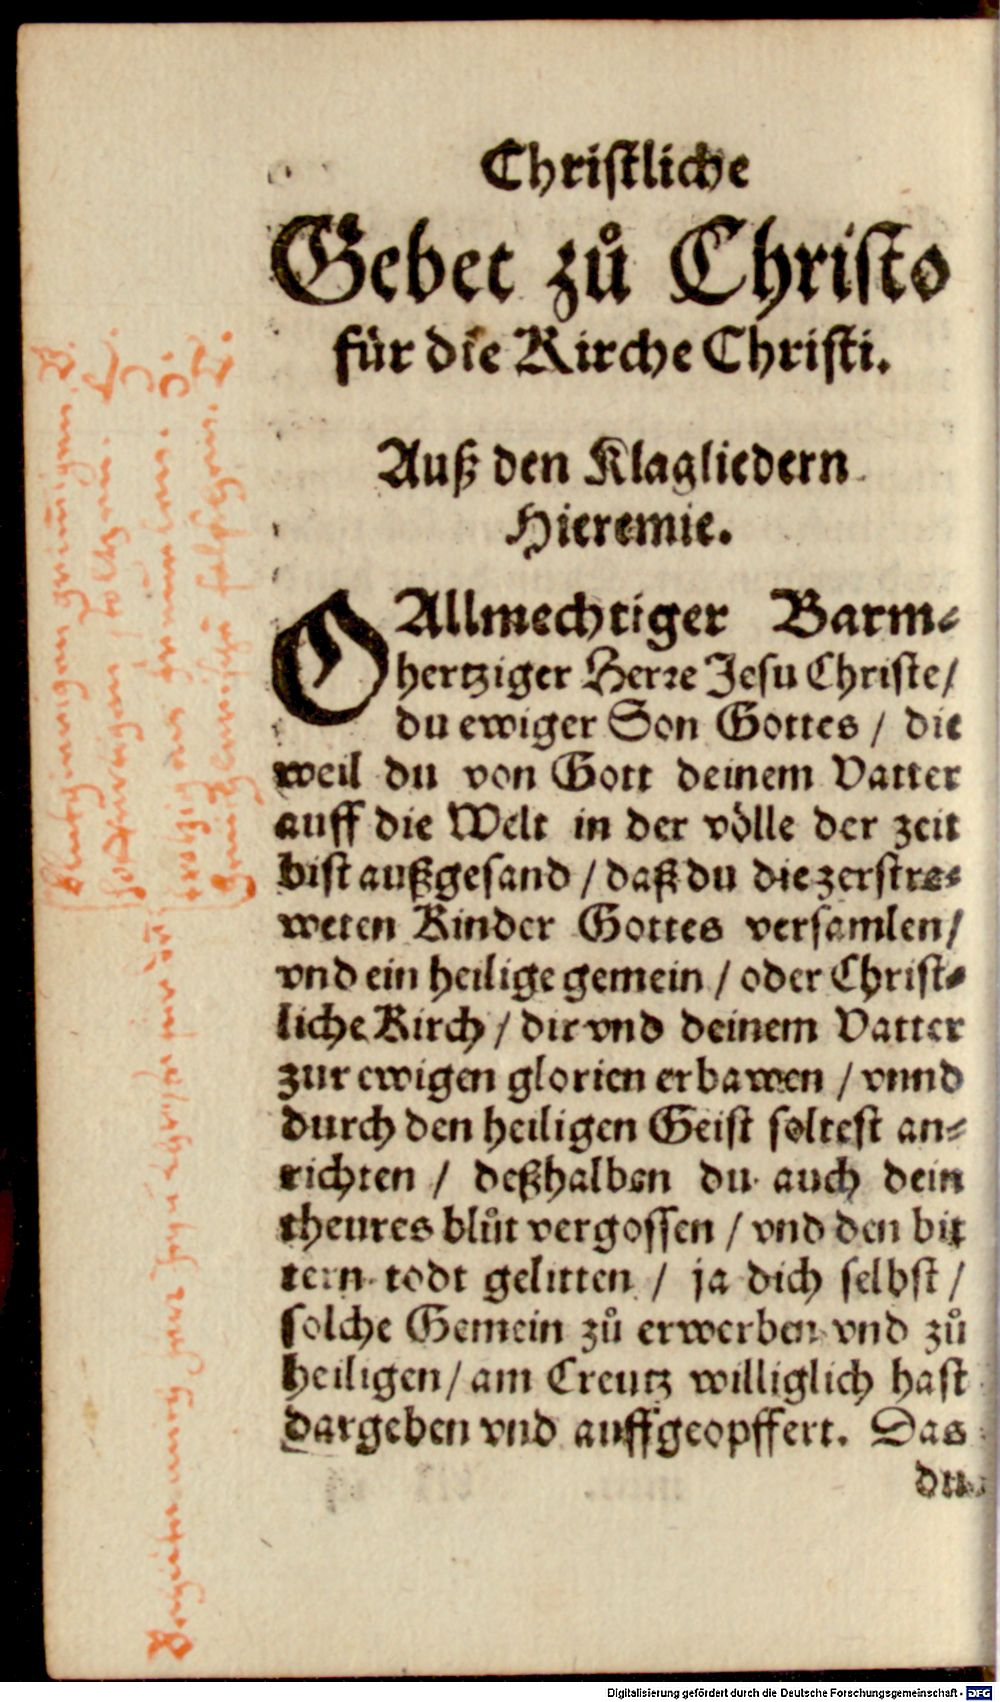 Christliche
Gebet zů Christo
für die Kirche Christi.
Auß den Klagliedern
Hieremie.
O Allmechtiger Barm⸗
hertziger Herre Jesu Christe/
du ewiger Son Gottes / die
weil du von Gott deinem Vatter
auff die Welt in der völle der zeit
bist außgesand / daß du die zerstre⸗
weten Kinder Gottes versamlen/
vnd ein heilige gemein / oder Christ⸗
liche Kirch / dir vnd deinem Vatter
zur ewigen glorien erbawen / vnnd
durch den heiligen Geist soltest an⸗
richten / deßhalben du auch dein
theures blůt vergossen / vnd den bit
tern todt gelitten / ja dich selbst /
solche Gemein zů erwerben vnd zů
heiligen/ am Creutz williglich hast
dargeben vnd auffgeopffert. Das
du
Digitalisierung gefördert durch die Deutsche Forschungsgemeinschaft - DFG